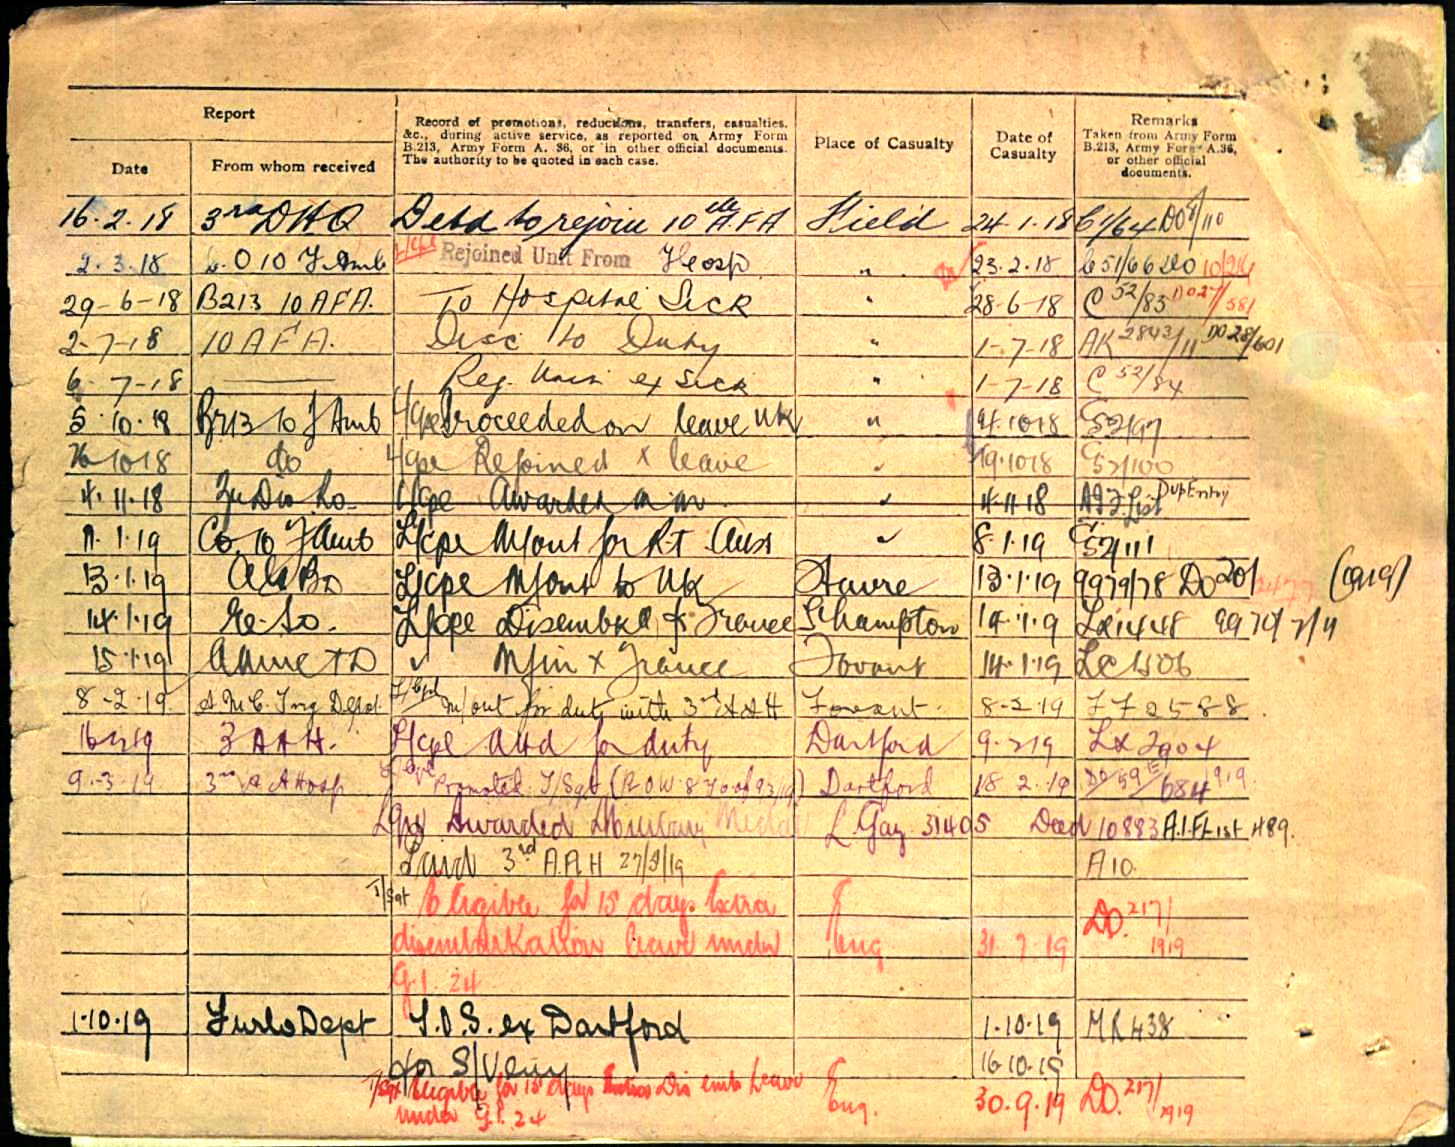 Report
Record of promotions, reductions, transfers, casualties,
&c., during active service, as reported on Army Form
B.213, Army Form A. 36, or in other official documents.
The authority to be quoted in each case.
Place of Casualty
Date of
Casualty
Remarks
Taken from Army Form
B.213, Army Form A.36,
or other official
documents.
Date
From whom received
16.2.18 3rd DHQ Detd to rejoin 10th A.F.A Field 24.1.18 C1/64 DO8/110
2.3.18 C.O 10 F Amb L/Cpl Rejoined Unit From Hosp " 23.2.18 C51/66 DO 10/
29-6-18 B213 10 A.F.A. To Hospital Sick " 28-6-18 C 52/83 DO27/581
2-7-18 10 A F A. Disc to Duty " 1-7-18 AK 2843/11 DO 28/601
6-7-18 Rej. Unit ex Sick " 1-7-18 C 52/84
5.10.18 B213 10 F Amb L/Cpl Proceeded on leave UK " 4.10.18 C 52/97
26.10.18 do L/Cpl Rejoined x leave " 19.10.18 C 52/100
4.11.18 L/Cpl Awarded M M " 4.11.18 AIF List Dup Entry
11.1.19 Co. 10 F Amb L/Cpl M/out for R.T. Aust " 8.1.19 C 52/111
13.1.19 L/Cpl M/out to UK Havre 13.1.19 9979/78 DO 20/ (1919)
14.1.19 L/Cpl Disembked f France S'hampton 14.1.19 Lx1448 9970/2/11
15.1.19 " M/in x France Fovant 14.1.19
8-2-19. A.M.C. Trng Depot. L/Cpl M/out for duty with 3rd A A H Fovant. 8-2-19 FF 2588
16.2.19 3 A A H. L/Cpl Attd for duty Dartford 9.2.19 Lx 2904
9.3.19 3rd A A Hosp L/Cpl Promoted T/Sgt Dartford 18.2.19 DO/59E/684 1919
Awarded Military Medal L. Gaz 31405 10883 A.I.F List 489.
3rd A.A.H 27/9/19 A10
T/Sgt Eligible for 15 days. Extra
disembarkation leave under
G.I. 24 Eng 31.7.19 DO. 217/1919
1.10.19 Furlo Dept T.O.S. ex Dartford 1.10.19 MR 438
16.10.19
T/Sgt Eligible for 15 days Extra Dis emb Leave
under G.I. 24 Eng. 30.9.19 DO. 217/1919